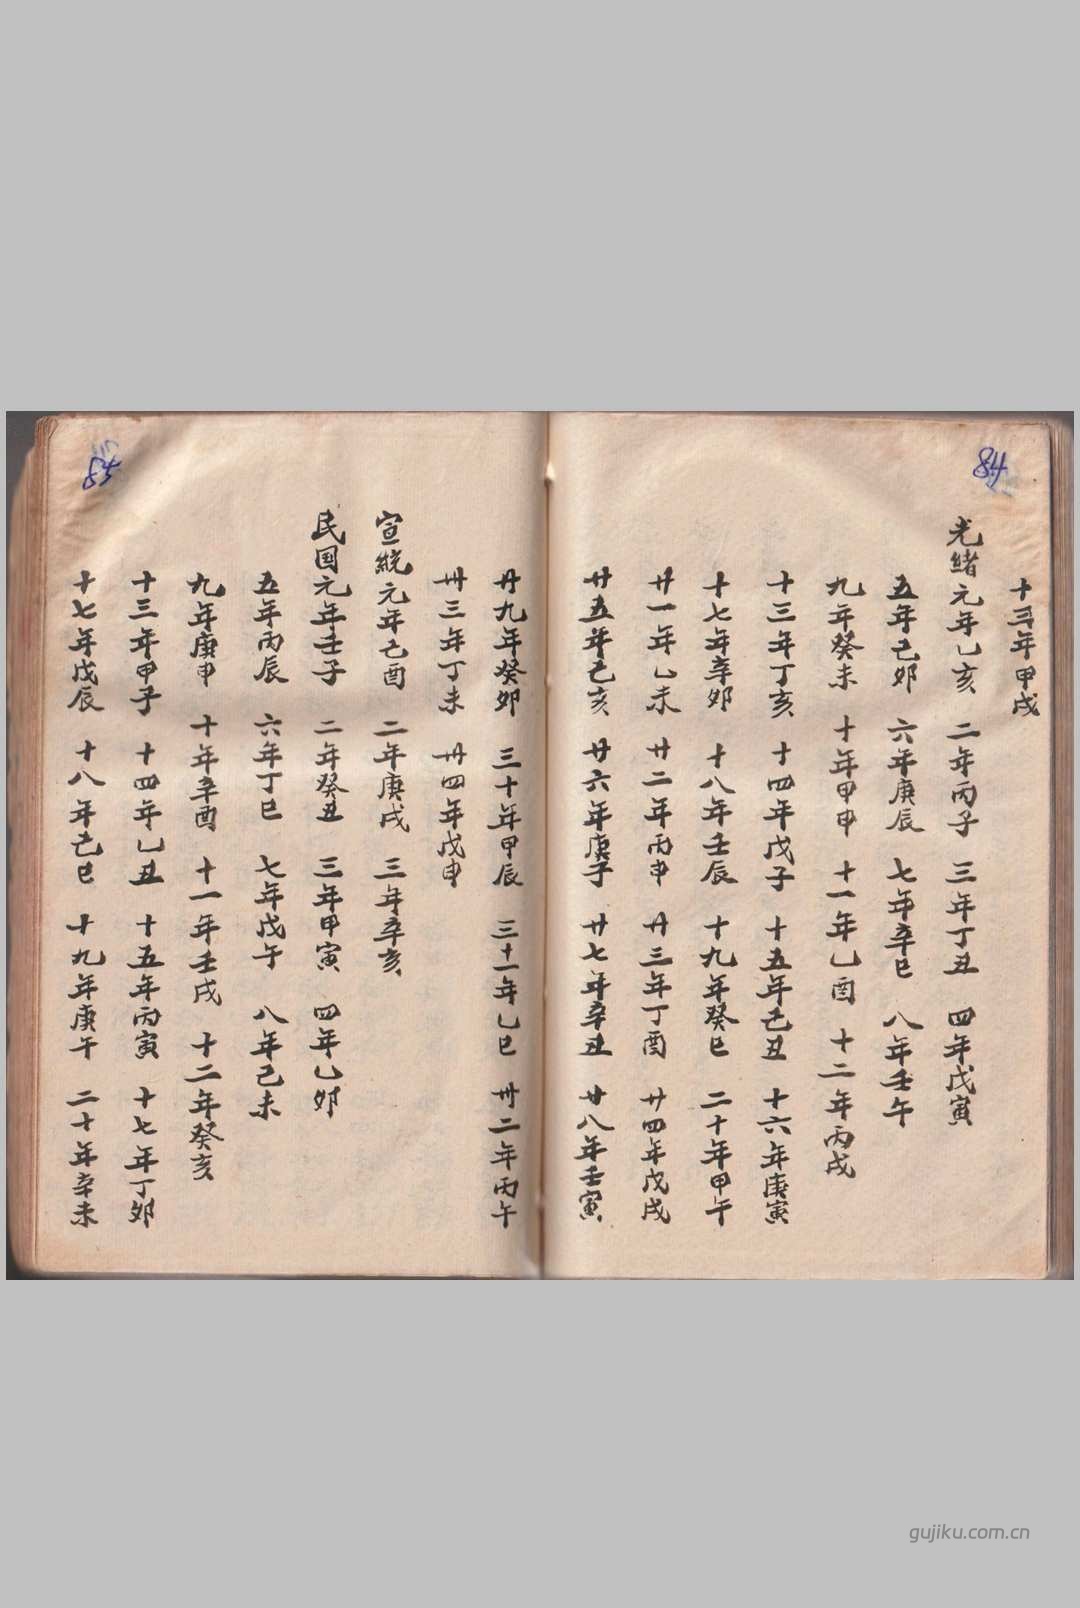 84
十三年甲戌
光緒元年乙亥 二年丙子 三年丁丑 四年戊寅
五年己卯 六年庚辰 七年辛巳 八年壬午
九年癸未 十年甲申 十一年乙酉 十二年丙戌
十三年丁亥 十四年戊子 十五年己丑 十六年庚寅
十七年辛卯 十八年壬辰 十九年癸巳 二十年甲午
廿一年乙未 廿二年丙申 廿三年丁酉 廿四年戊戌
廿五年己亥 廿六年庚子 廿七年辛丑 廿八年壬寅
85
廿九年癸卯 三十年甲辰 三十一年乙巳 卅二年丙午
卅三年丁未 卅四年戊申
宣統元年己酉 二年庚戌 三年辛亥
民国元年壬子 二年癸丑 三年甲寅 四年乙卯
五年丙辰 六年丁巳 七年戊午 八年己未
九年庚申 十年辛酉 十一年壬戌 十二年癸亥
十三年甲子 十四年乙丑 十五年丙寅 十七年丁卯
十七年戊辰 十八年己巳 十九年庚午 二十年辛未
gujiku.com.cn